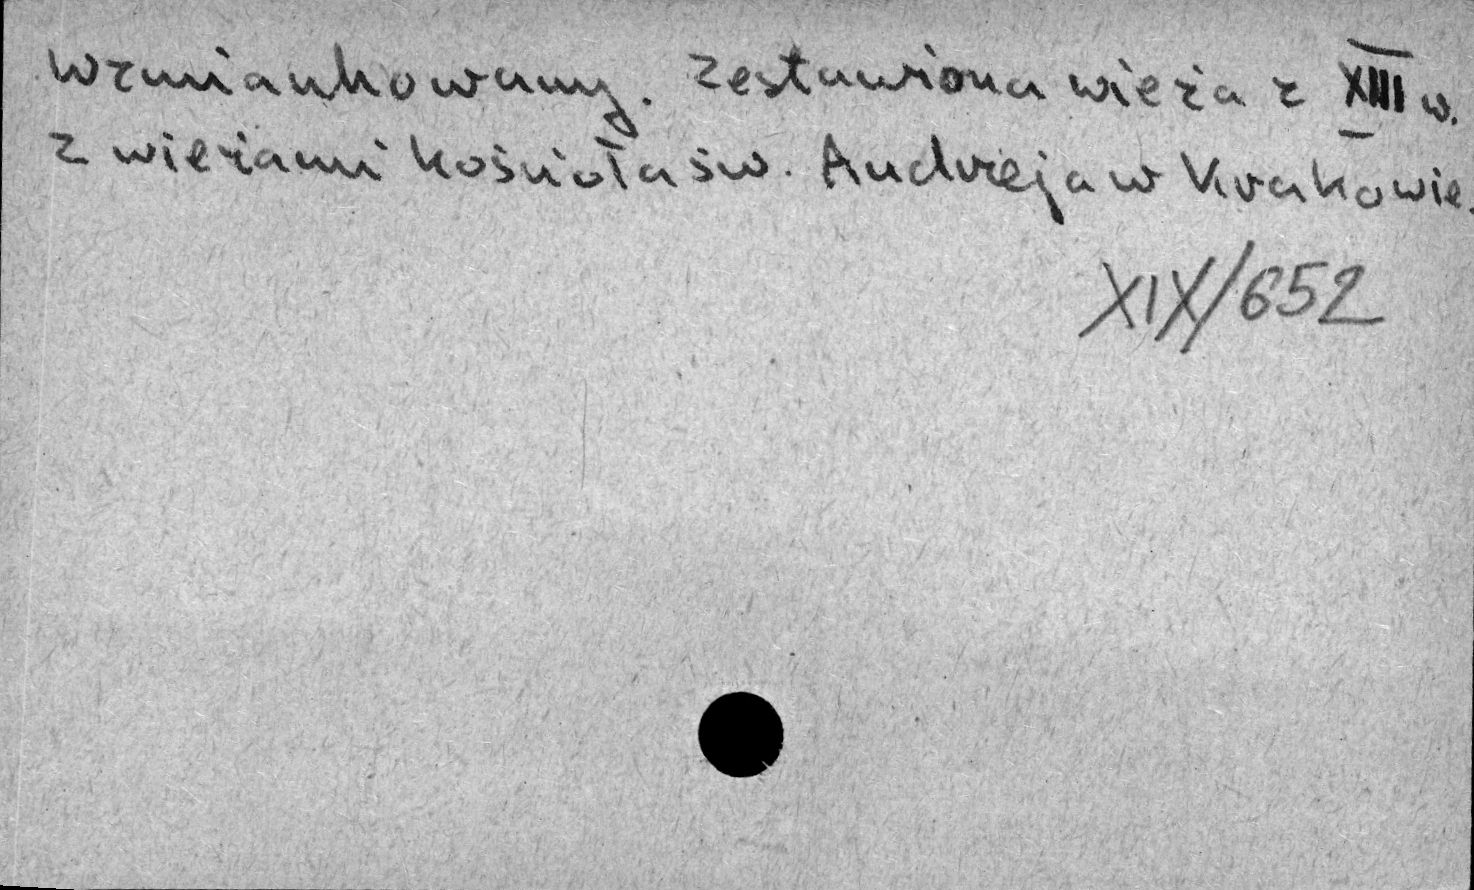 wzmiankowany. Zestawiona wieża z XIII w.
z wieżami kościoła św. Andrzeja w Krakowie.
XIX/652